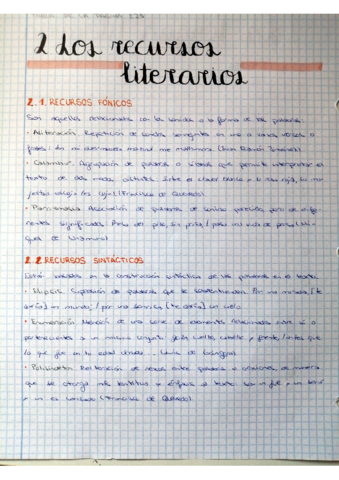 2 Los recursos
literarios
2.1. RECURSOS FÓNICOS
Son aquellos relacionados con los sonidos o la forma de las palabras:
· Aliteración. Repetición de sonidos semejantes en uno o varios versos o
frases: En mi duermevela matinal me malhumora (Juan Ramón Jiménez).
· Calambur. Agrupación de palabras o sílabas que permite interpretar el
texto de dos modos distintos. Entre el clavel blanco y la rosa roja, su ma-
jestad escoja / es coja (Francisco de Quevedo).
· Paronomasia. Asociación de palabras de sonido parecido, pero de dife-
rentes significados. Prosa del piso, sin prisa / pasa mi vida de poeta (Mi-
guel de Unamuno)
2.2 RECURSOS SINTÁCTICOS
Están basados en la construcción sintáctica de las palabras en el texto
· Elipsis. Supresión de palabras que se sobreentienden. Por una mirada, [te
daría] un mundo, / por una sonrisa, [te daría] un cielo
· Enumeración. Adición de una serie de elementos relacionados entre sí o
pertenecientes a un mismo conjunto. goza cuello, cabello y frente, / antes que
lo que fue en tu edad dorada ... (Luis de Góngora)
· Polisíndeton. Reiteración de nexos entre palabras u oraciones, de manera
que se otorga más lentitud y énfasis al texto. soy un fue, y un será
y un es cansado (Francisco de Quevedo).